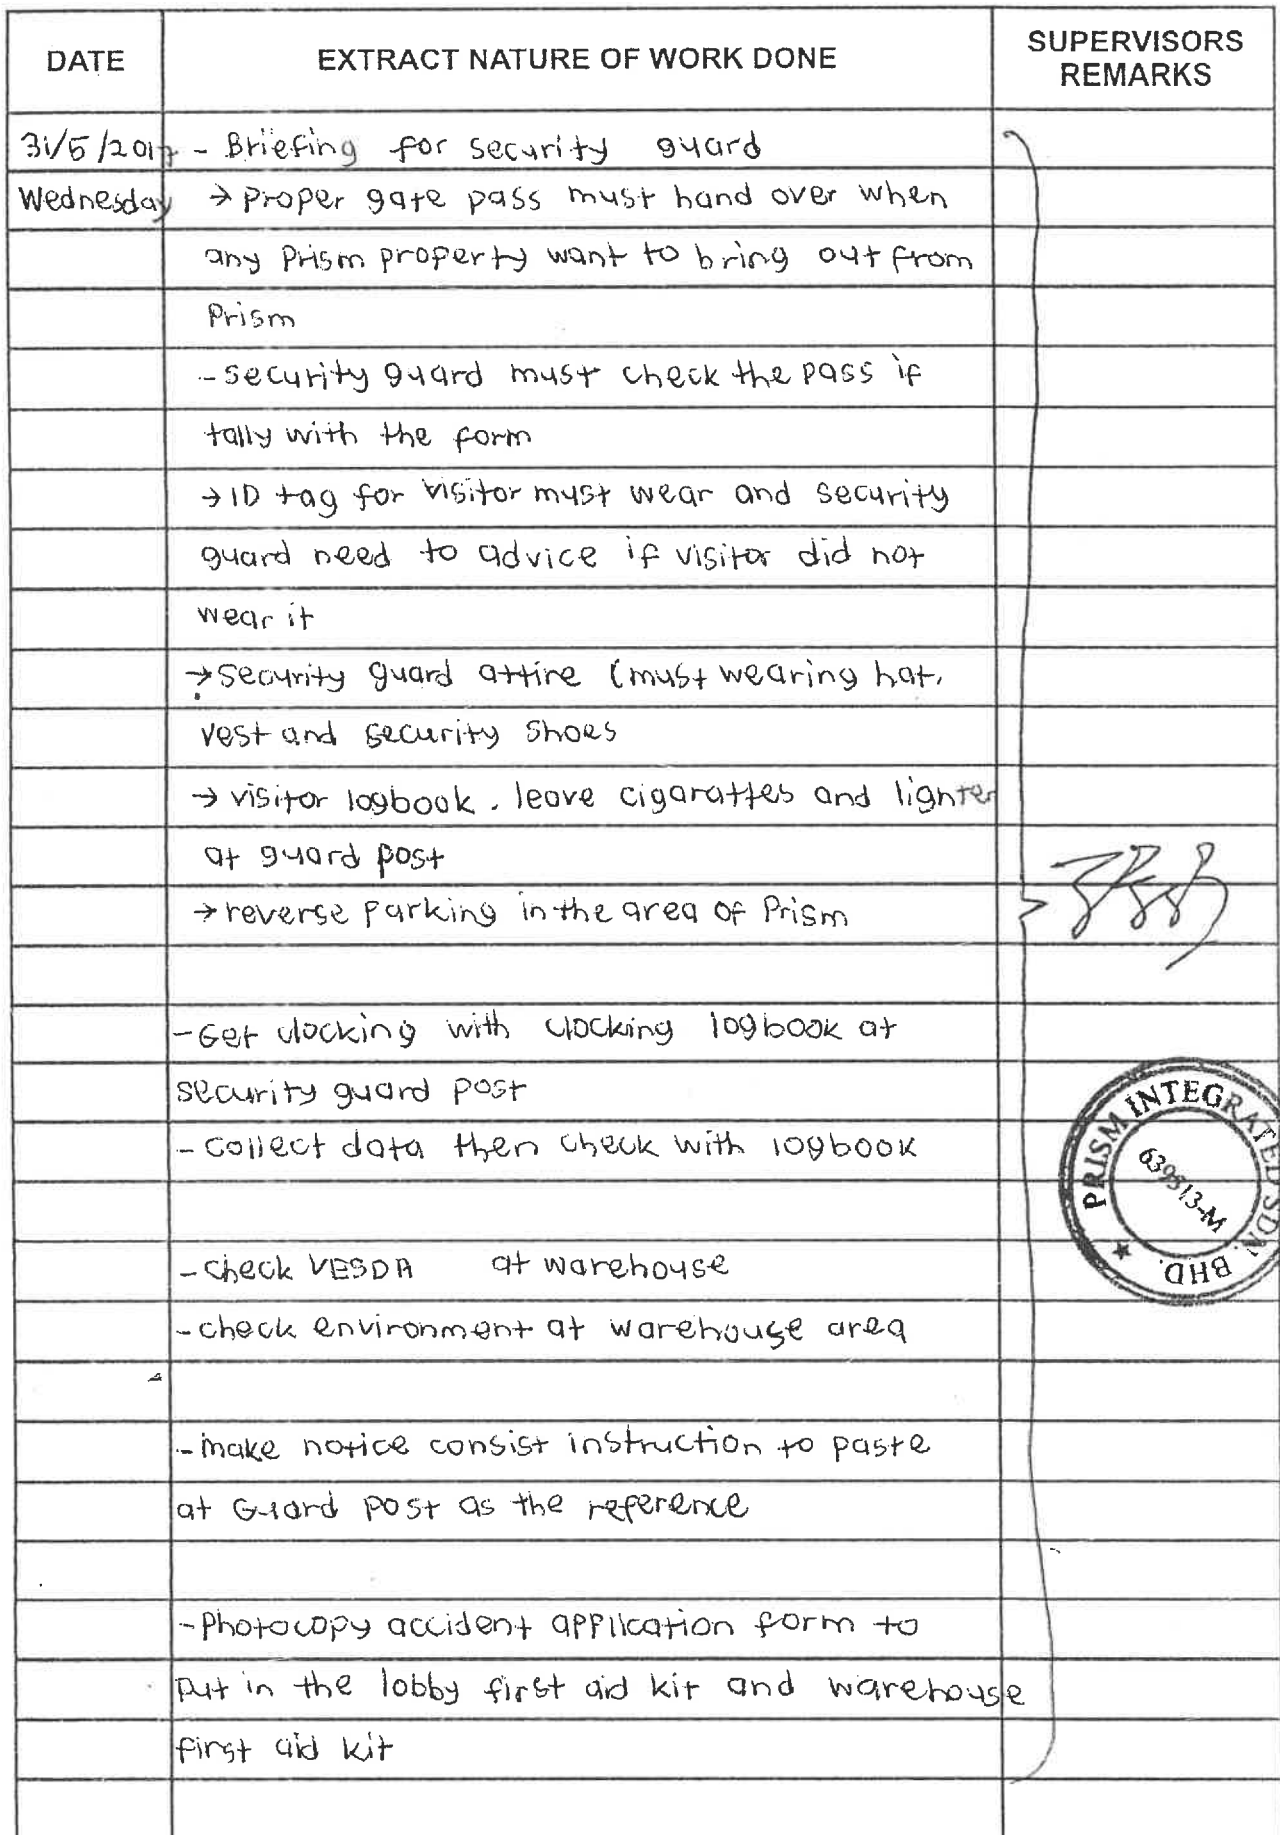 DATE EXTRACT NATURE OF WORK DONE SUPERVISORS REMARKS
31/5/2017 - Briefing for security guard
Wednesday → Proper gate pass must hand over when
any Prism property want to bring out from
Prism
- security guard must check the pass if
tally with the form
→ ID tag for visitor must wear and security
guard need to advice if visitor did not
wear it
→ security guard attire (must wearing hat,
vest and security shoes
→ visitor logbook. leave cigarattes and lighter
at guard post
→ reverse parking in the area of Prism
- Get clocking with clocking logbook at
security guard post
- collect data then check with logbook
PRISM INTEGRATED SDN. BHD. ★
639513-M
- check VESDA at warehouse
- check environment at warehouse area
- make notice consist instruction to paste
at Guard post as the reference
- Photocopy accident application form to
put in the lobby first aid kit and warehouse
first aid kit